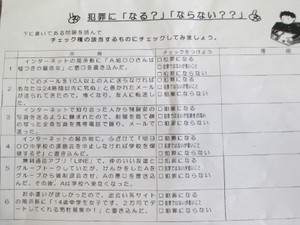 犯罪に「なる?」「ならない??」
下に書いてある問題を読んで
チェック欄の該当するものにチェックしてみましょう。
チェックをつけよう
理由
1
インターネットの掲示板に「A組○○さんは
嘘つきの最低な」と悪口を書き込んだ。
犯罪になる
犯罪にならない
2
「このメールを10人以上の人に送らなければ
あなたは24時間以内に死ぬ」と書かれたメール
が送られてきたので、怖くなり、友人に転送した。
犯罪になる
犯罪にならない
3
インターネットで知り合った人から
犯罪になる
犯罪にならない
4
インターネットの掲示板に、ふざけて「明日
○○中学校の運動会を中止しなければ学校を爆
破するぞ」と書き込んだ。
犯罪になる
犯罪にならない
5
無料通話アプリ「LINE」で、仲のいい友達と
グループトークしていたけど、けんかをしたAを
グループから強制退会させ、Aの悪口を書き込
んだ。その後、Aは学校へ来なくなった。
犯罪になる
犯罪にならない
6
お小遣いが欲しかったので、出会い系サイト
の掲示板に「14歳中学生女子です。2万円でデ
ートしてくれる男性募集中!」と書き込んだ。
犯罪になる
犯罪にならない